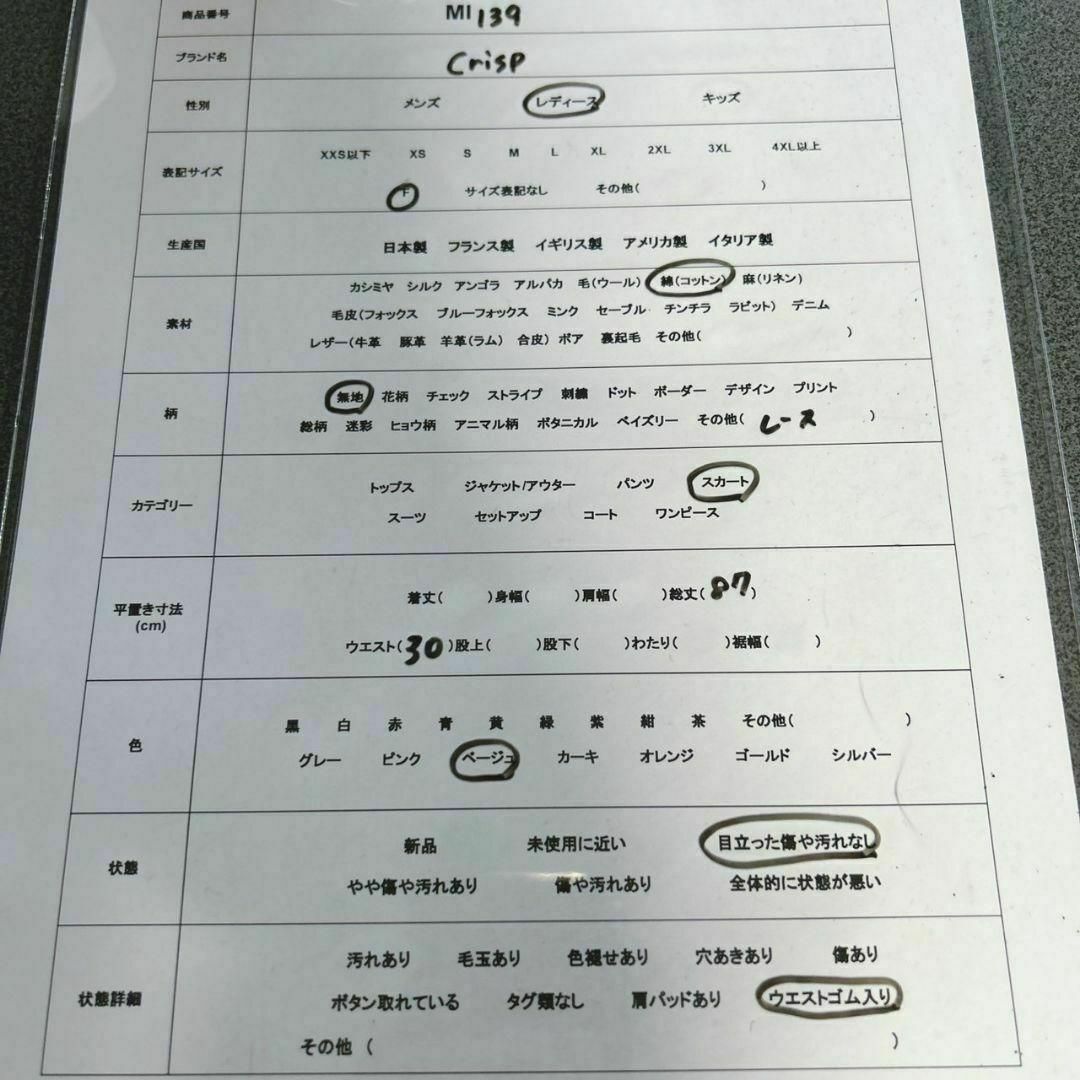 商品番号 MI 139
ブランド名 Crisp
性別 メンズ レディース キッズ
表記サイズ XXS以下 XS S M L XL 2XL 3XL 4XL以上
F サイズ表記なし その他( )
生産国 日本製 フランス製 イギリス製 アメリカ製 イタリア製
素材 カシミヤ シルク アンゴラ アルパカ 毛(ウール) 綿(コットン) 麻(リネン)
毛皮(フォックス ブルーフォックス ミンク セーブル チンチラ ラビット) デニム
レザー(牛革 豚革 羊革(ラム) 合皮) ボア 裏起毛 その他( )
柄 無地 花柄 チェック ストライプ 刺繍 ドット ボーダー デザイン プリント
総柄 迷彩 ヒョウ柄 アニマル柄 ボタニカル ペイズリー その他( レース )
カテゴリー トップス ジャケット/アウター パンツ スカート
スーツ セットアップ コート ワンピース
平置き寸法 着丈( )身幅( )肩幅( )総丈( 87 )
(cm) ウエスト( 30 )股上( )股下( )わたり( )裾幅( )
色 黒 白 赤 青 黄 緑 紫 紺 茶 その他( )
グレー ピンク ベージュ カーキ オレンジ ゴールド シルバー
状態 新品 未使用に近い 目立った傷や汚れなし
やや傷や汚れあり 傷や汚れあり 全体的に状態が悪い
状態詳細 汚れあり 毛玉あり 色褪せあり 穴あきあり 傷あり
ボタン取れている タグ類なし 肩パッドあり ウエストゴム入り
その他 ( )